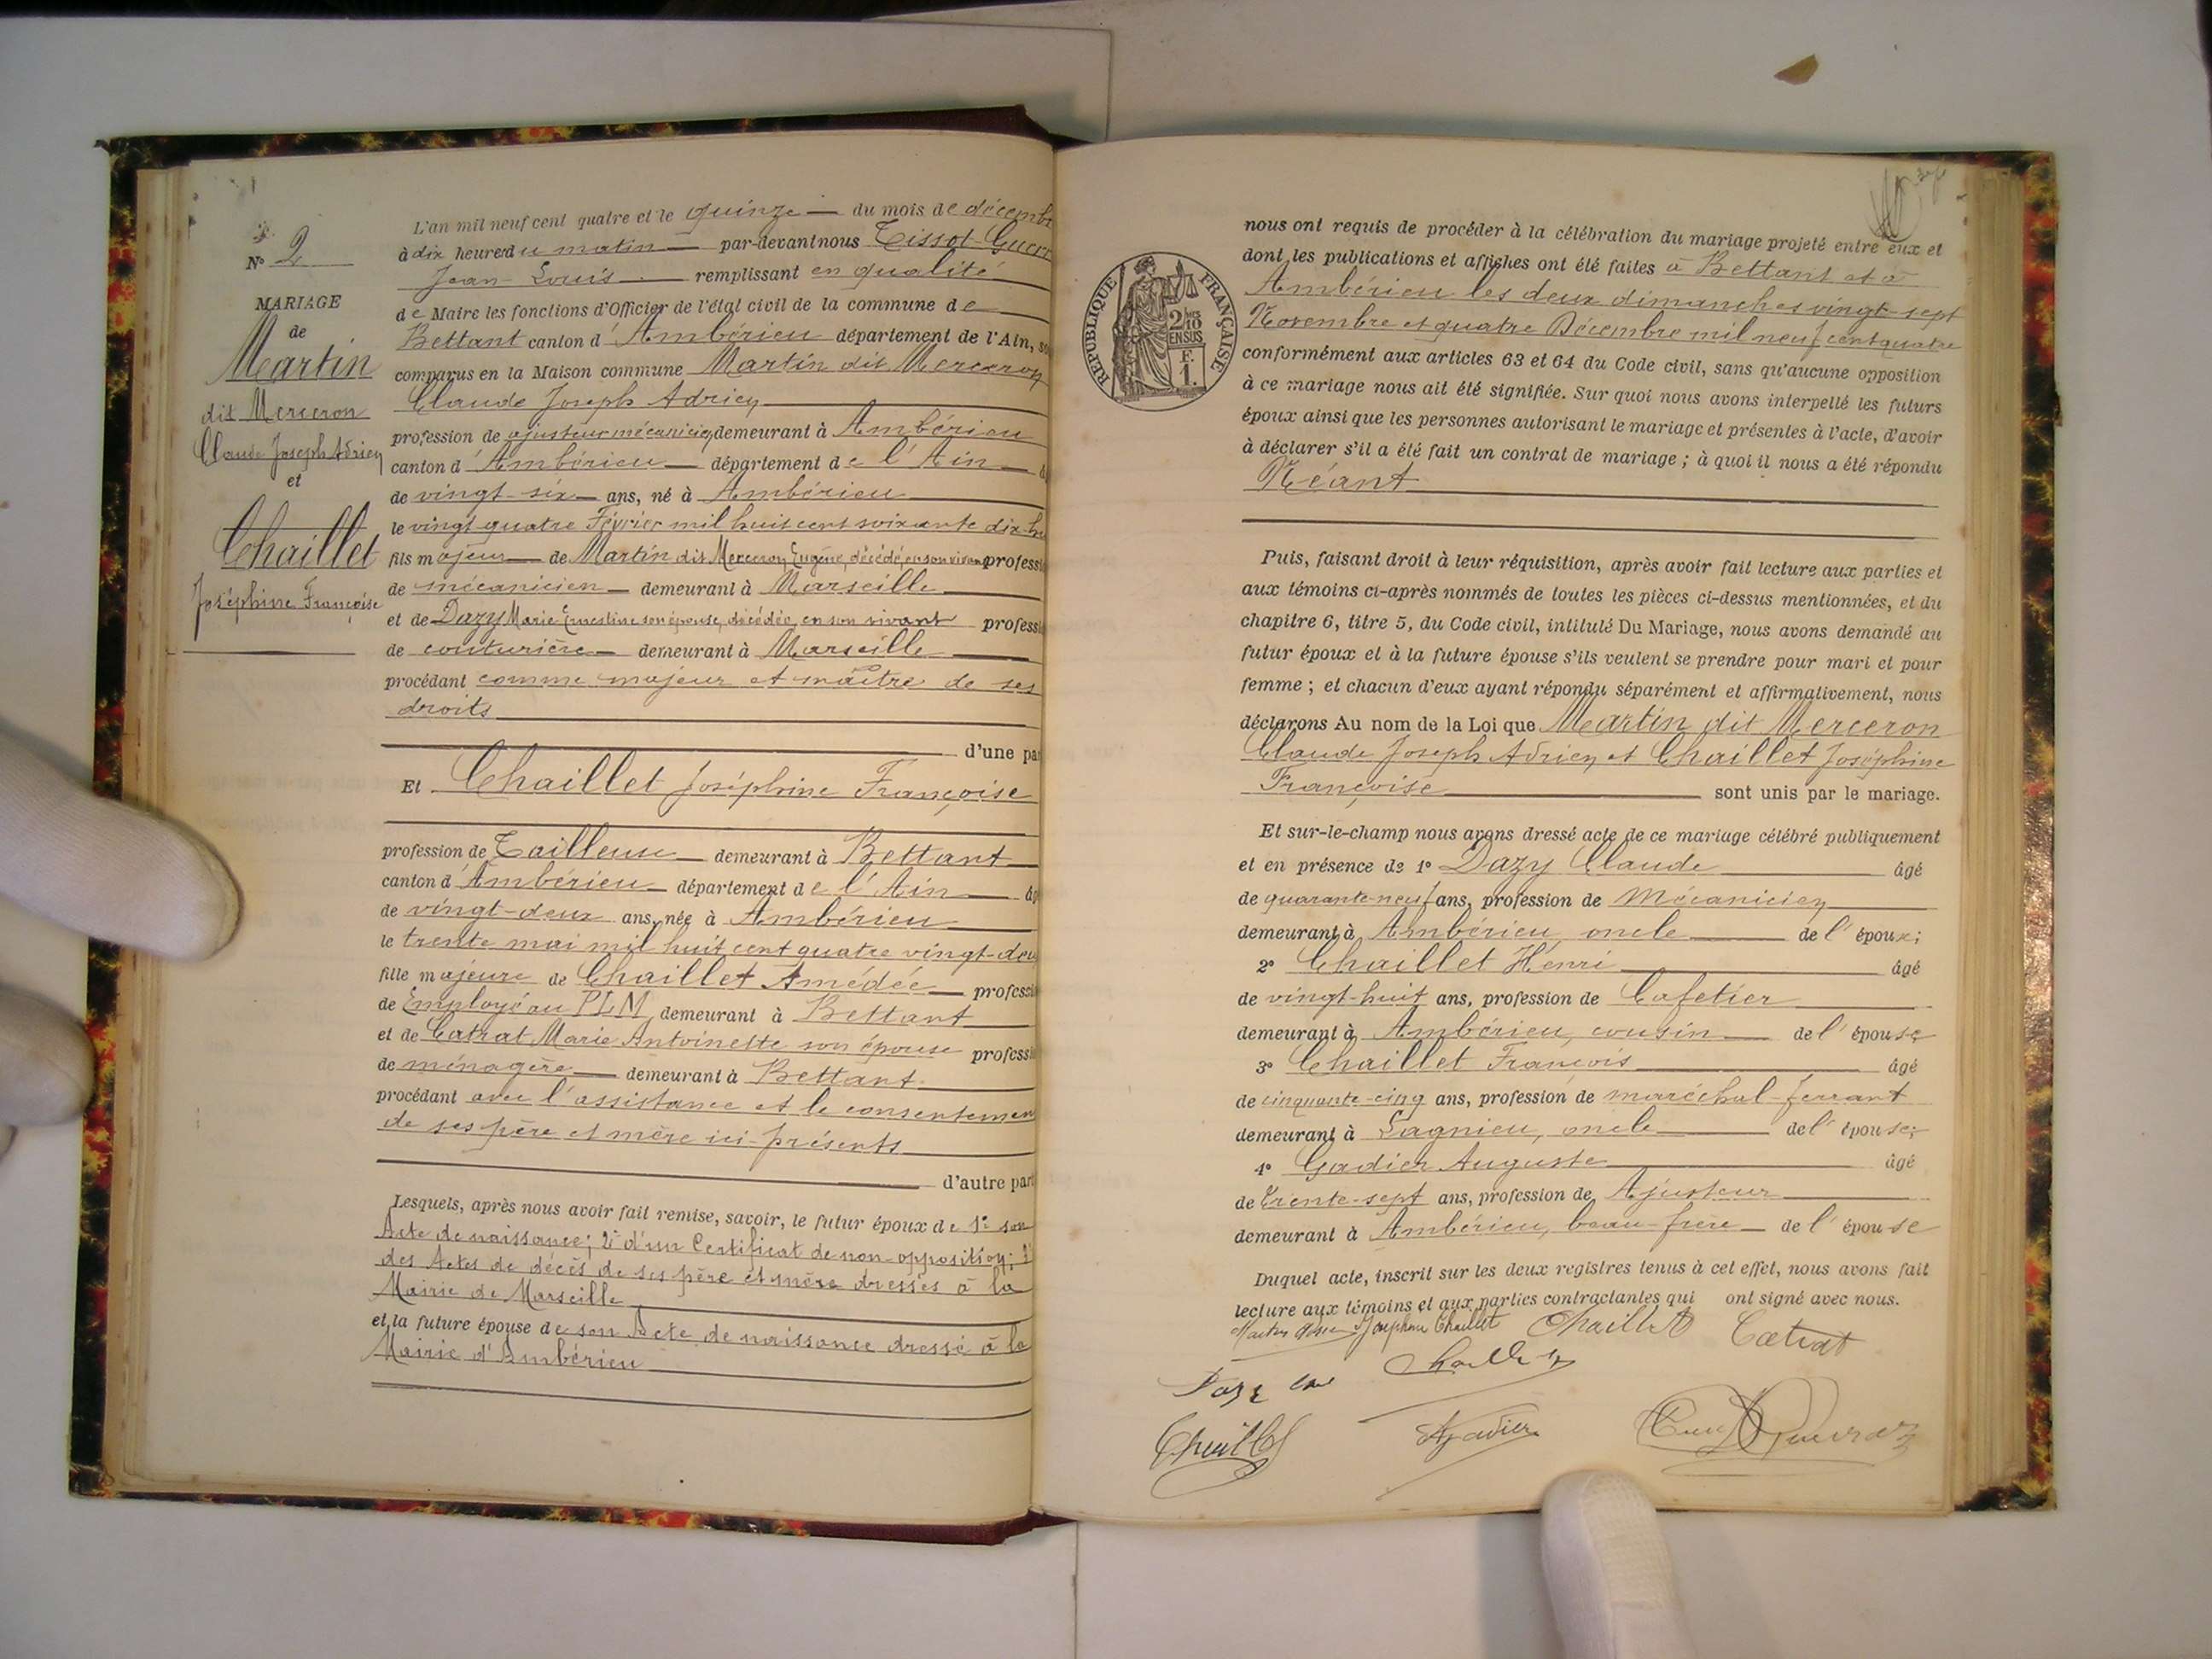 N° 2
MARIAGE
de
Martin
dit Merceron
Claude Joseph Adrien
et
Chaillet
Joséphine Françoise
L'an mil neuf cent quatre et le quinze du mois de décembr
à dix heures du matin par-devant nous Tissot-Guerr
Jean-Louis remplissant en qualité
de Maire les fonctions d'Officier de l'état civil de la commune de
Bettant canton d'Ambérieu département de l'Ain, so
comparus en la Maison commune Martin dit Merceron
Claude Joseph Adrien
profession de ajusteur mécanicien demeurant à Ambérieu
canton d'Ambérieu département de l'Ain
de vingt-six ans, né à Ambérieu
le vingt-quatre Février mil huit cent soixante dix-hu
fils majeur de Martin dit Merceron Eugène, décédé, en son vivant professi
de mécanicien demeurant à Marseille
et de Dazy Marie Ernestine son épouse, décédée, en son vivant professi
de couturière demeurant à Marseille
procédant comme majeur et maître de ses
droits
d'une pa
Et Chaillet Joséphine Françoise
profession de Tailleuse demeurant à Bettant
canton d'Ambérieu département de l'Ain âg
de vingt-deux ans, née à Ambérieu
le trente mai mil huit cent quatre vingt-deu
fille majeure de Chaillet Amédée professi
de Employé au PLM demeurant à Bettant
et de Catrat Marie Antoinette son épouse professi
de ménagère demeurant à Bettant
procédant avec l'assistance et le consentemen
de ses père et mère ici-présents
d'autre part
Lesquels, après nous avoir fait remise, savoir, le futur époux de 1° son
Acte de naissance; 2° d'un Certificat de non-opposition; 3°
des Actes de décès de ses père et mère dressés à la
Mairie de Marseille
et la future épouse de son Acte de naissance dressé à la
Mairie d'Ambérieu
RÉPUBLIQUE FRANÇAISE
2/10
EN SUS
F.
1.
nous ont requis de procéder à la célébration du mariage projeté entre eux et
dont les publications et affiches ont été faites à Bettant et à
Ambérieu les deux dimanches vingt-sept
Novembre et quatre Décembre mil neuf cent quatre
conformément aux articles 63 et 64 du Code civil, sans qu'aucune opposition
à ce mariage nous ait été signifiée. Sur quoi nous avons interpellé les futurs
époux ainsi que les personnes autorisant le mariage et présentes à l'acte, d'avoir
à déclarer s'il a été fait un contrat de mariage ; à quoi il nous a été répondu
Néant
Puis, faisant droit à leur réquisition, après avoir fait lecture aux parties et
aux témoins ci-après nommés de toutes les pièces ci-dessus mentionnées, et du
chapitre 6, titre 5, du Code civil, intitulé Du Mariage, nous avons demandé au
futur époux et à la future épouse s'ils veulent se prendre pour mari et pour
femme ; et chacun d'eux ayant répondu séparément et affirmativement, nous
déclarons Au nom de la Loi que Martin dit Merceron
Claude Joseph Adrien et Chaillet Joséphine
Françoise sont unis par le mariage.
Et sur-le-champ nous avons dressé acte de ce mariage célébré publiquement
et en présence de 1° Dazy Claude âgé
de quarante-neuf ans, profession de Mécanicien
demeurant à Ambérieu, oncle de l'époux;
2° Chaillet Henri âgé
de vingt-huit ans, profession de Cafetier
demeurant à Ambérieu, cousin de l'épouse
3° Chaillet François âgé
de cinquante-cinq ans, profession de maréchal-ferrant
demeurant à Lagnieu, oncle de l'épouse;
4° Gadier Auguste âgé
de trente-sept ans, profession de Ajusteur
demeurant à Ambérieu, beau-frère de l'épouse
Duquel acte, inscrit sur les deux registres tenus à cet effet, nous avons fait
lecture aux témoins et aux parties contractantes qui ont signé avec nous.
Joséphine Chaillet Chaillet Catrat
Chaillet
Gadier